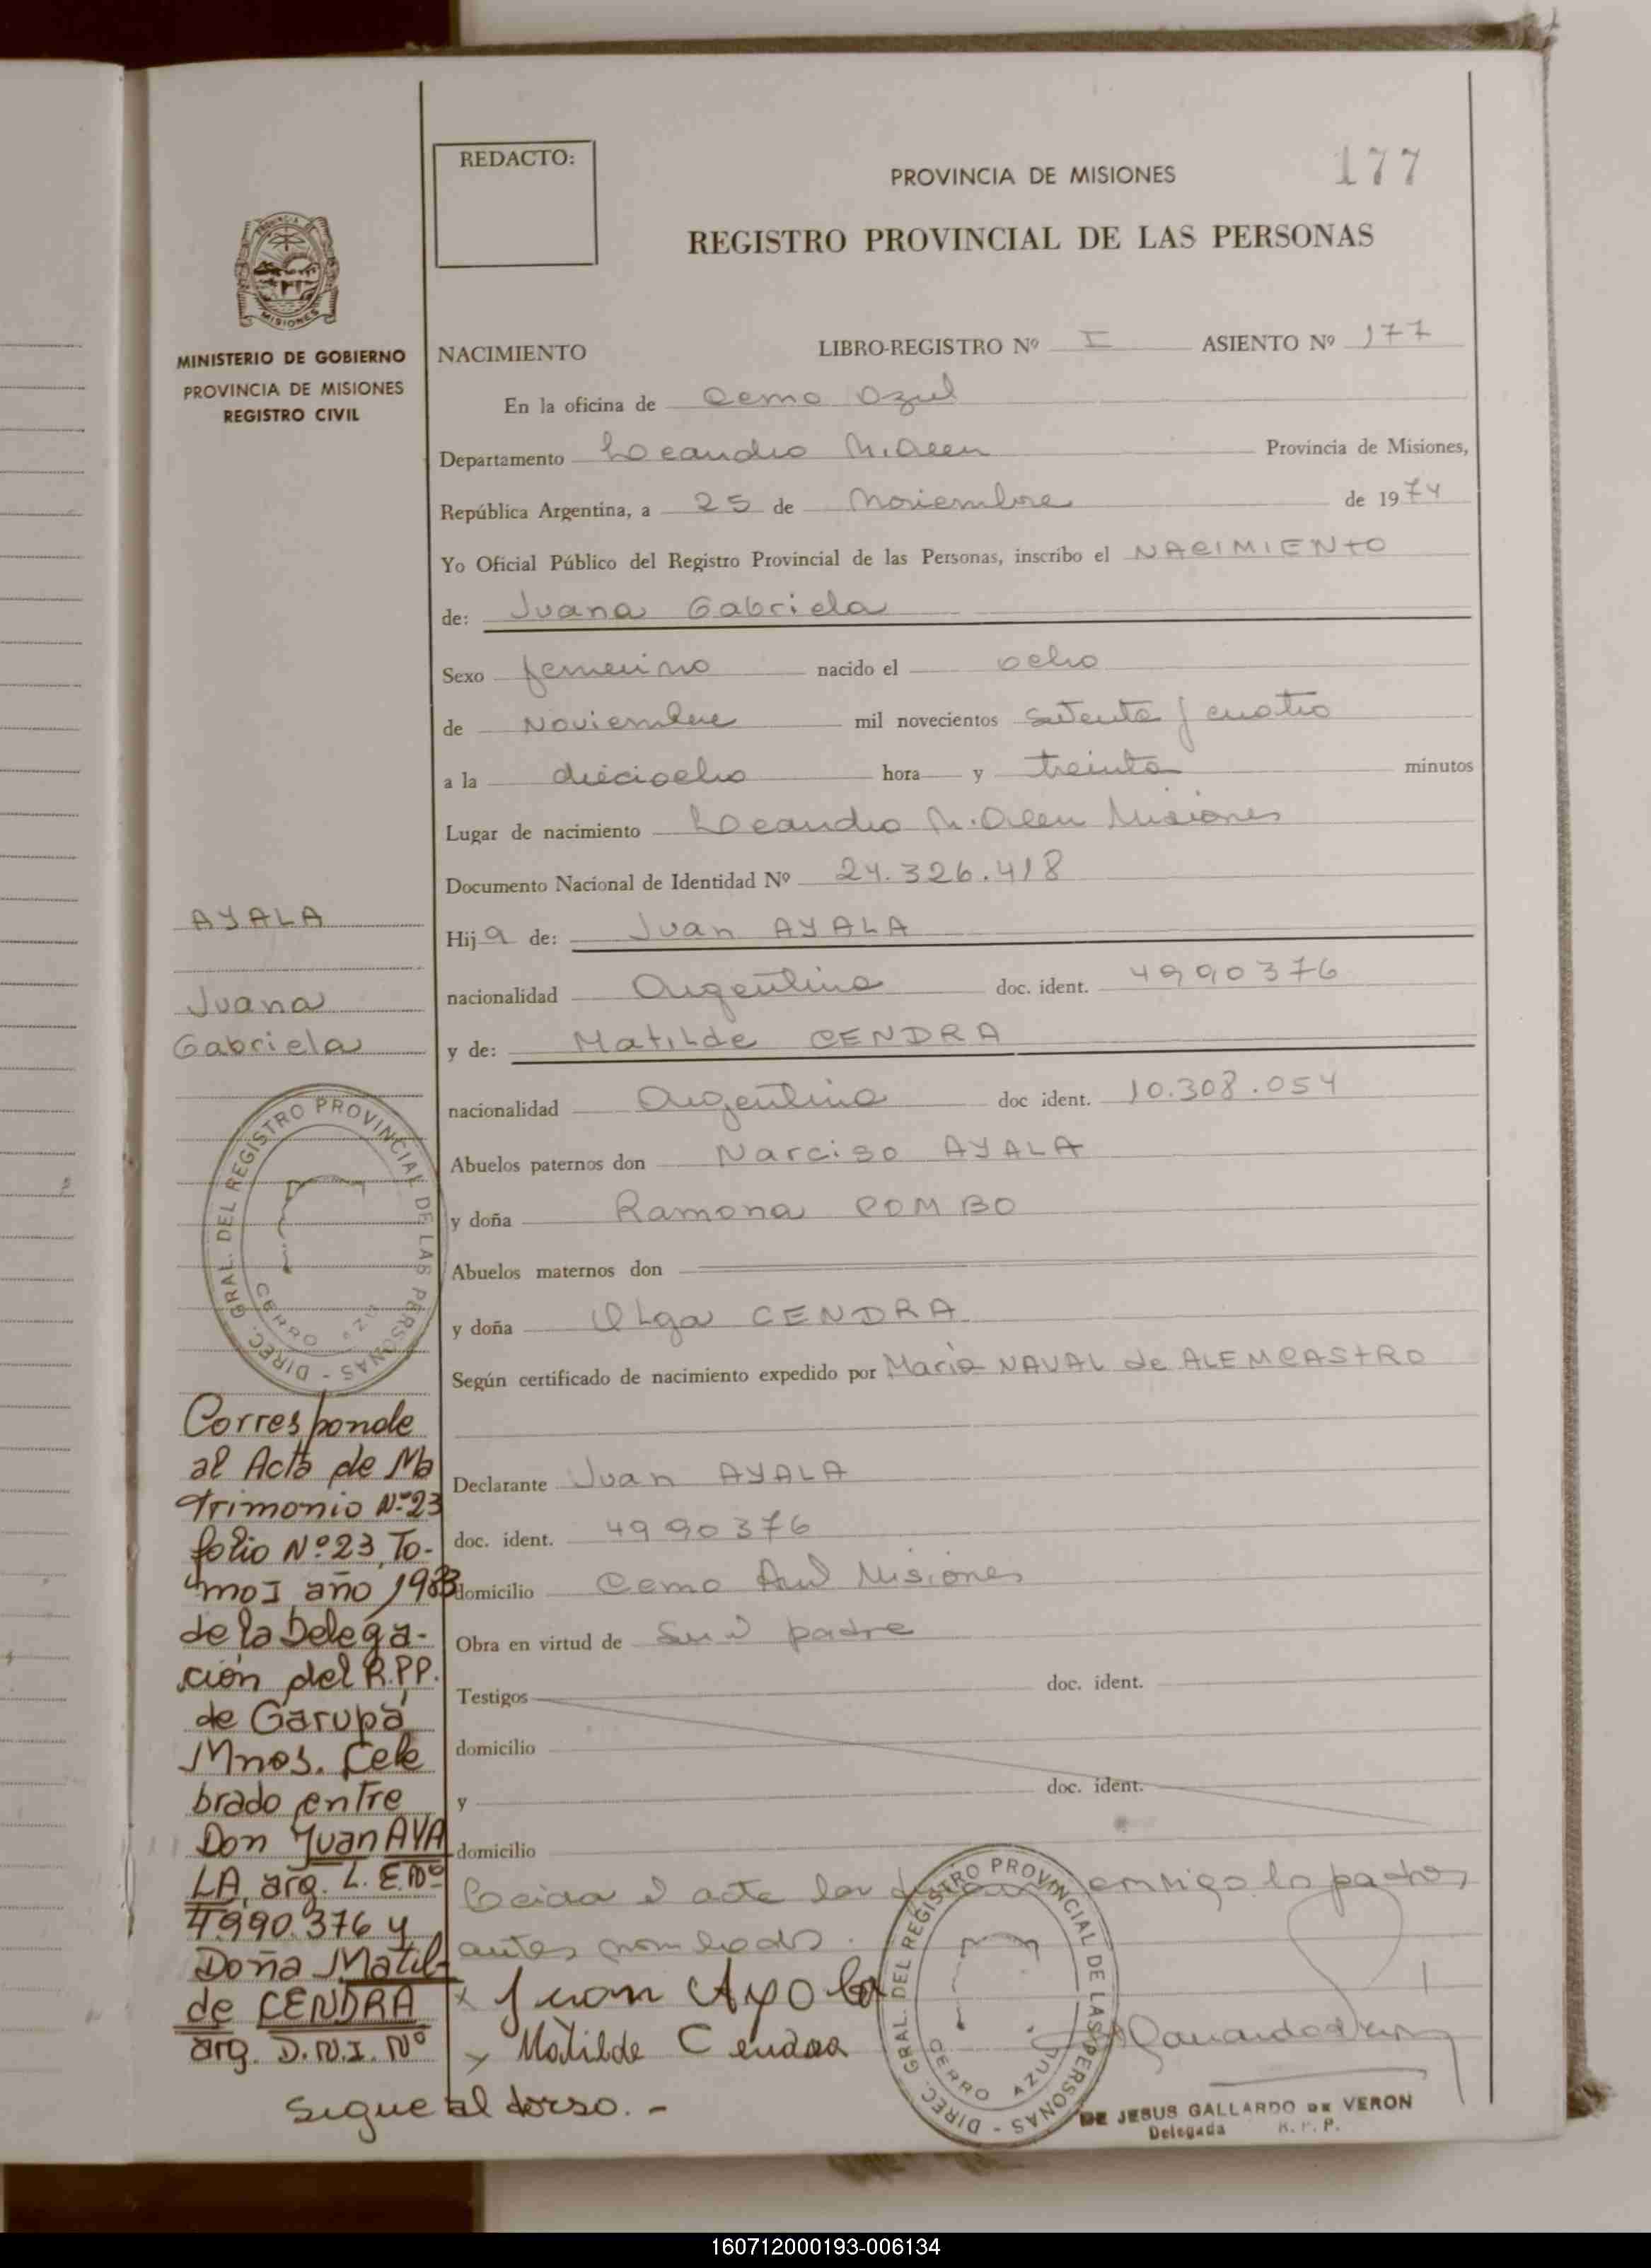 REDACTO:
PROVINCIA DE MISIONES
177
REGISTRO PROVINCIAL DE LAS PERSONAS
MISIONES
MINISTERIO DE GOBIERNO
PROVINCIA DE MISIONES
REGISTRO CIVIL
NACIMIENTO LIBRO-REGISTRO Nº I ASIENTO Nº 177
En la oficina de Cerro Azul
Departamento Leandro N. Alem Provincia de Misiones,
República Argentina, a 25 de Noviembre de 1974
Yo Oficial Público del Registro Provincial de las Personas, inscribo el NACIMIENTO
de: Juana Gabriela
Sexo femenino nacido el ocho
de Noviembre mil novecientos setenta y cuatro
a la dieciocho hora y treinta minutos
Lugar de nacimiento Leandro N. Alem Misiones
Documento Nacional de Identidad Nº 24.326.418
Hija de: Juan AYALA
nacionalidad Argentina doc. ident. 4990376
y de: Matilde CENDRA
nacionalidad Argentina doc ident. 10.308.054
Abuelos paternos don Narciso AYALA
y doña Ramona COMBO
Abuelos maternos don
y doña Olga CENDRA
Según certificado de nacimiento expedido por Maria NAVAL de ALEMCASTRO
Declarante Juan AYALA
doc. ident. 4990376
domicilio Cerro Azul Misiones
Obra en virtud de ser padre
Testigos doc. ident.
domicilio
y doc. ident.
domicilio
Leida el acta la conmigo los padres
antes nombrados.
x Juan Ayala
x Matilde Cendra
DIREC. GRAL. DEL REGISTRO PROVINCIAL DE LAS PERSONAS -
CERRO AZUL
DE JESUS GALLARDO DE VERON
Delegada R. P. P.
AYALA
Juana
Gabriela
DIREC. GRAL. DEL REGISTRO PROVINCIAL DE LAS PERSONAS -
CERRO AZU
Corresponde
al Acta de Ma
trimonio Nº 23
folio Nº 23, To-
mo I año 1983
de la Delega-
ción del R.P.P.
de Garupá
Mnes. Cele
brado entre
Don Juan AYA
LA, arg. L. E. Nº
4.990.376 y
Doña Matil-
de CENDRA
arg. D.N.I. Nº
Sigue al dorso. -
160712000193-006134